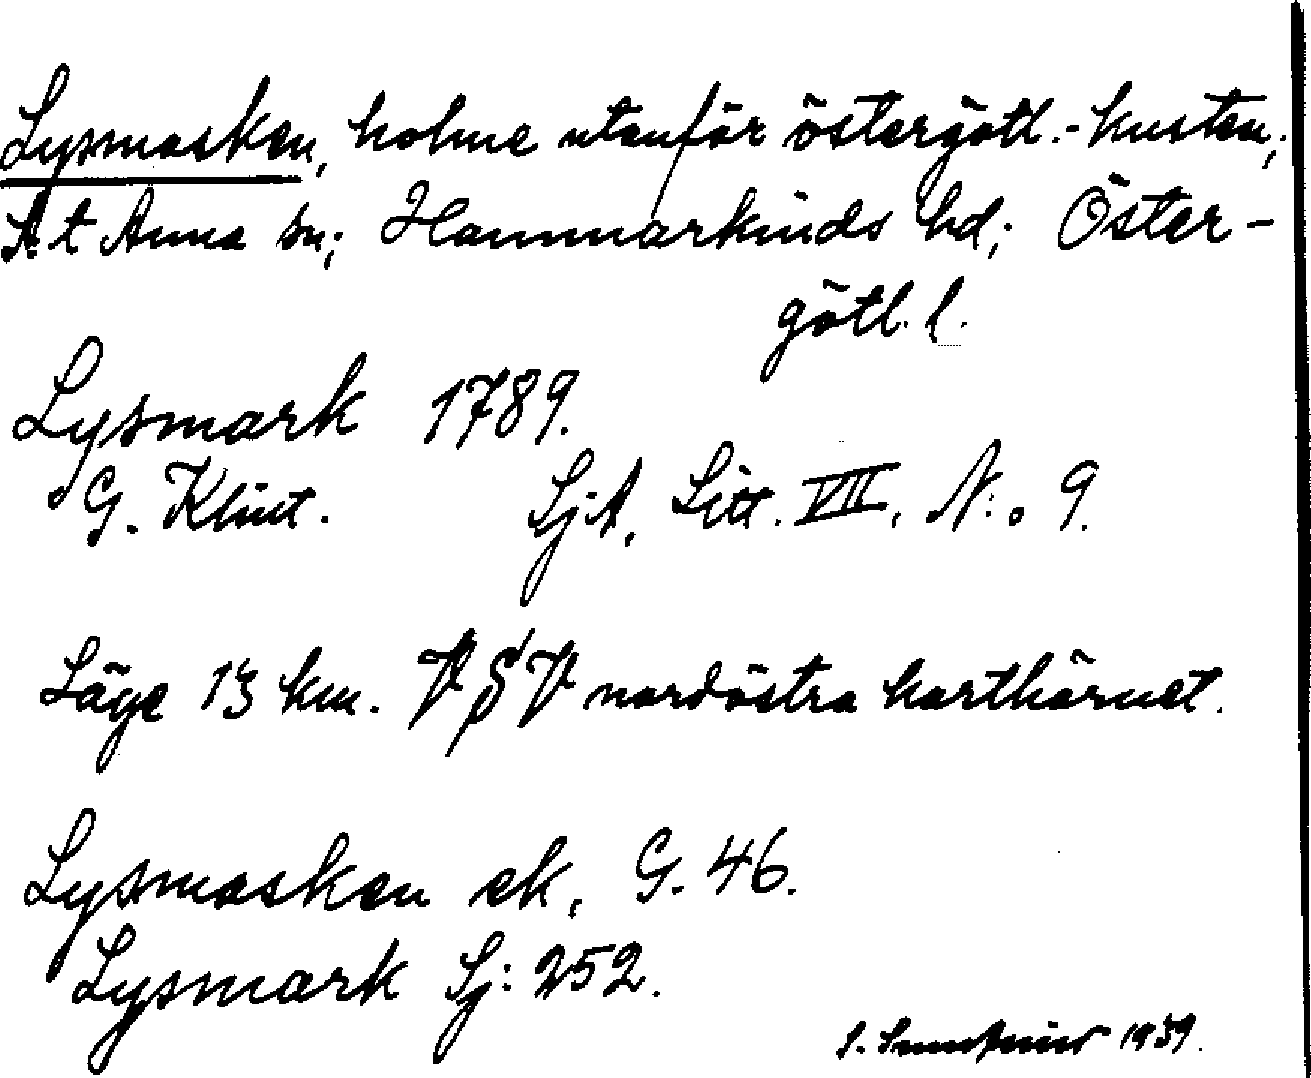 Lysmasken, holme utanför östergötl.-kusten;
S:t Anna sn; Hammarkinds hd; Öster-
götl. l.
Lysmark 1789.
G. Klint. SjA, Litt. VII, N:o 9.
Läge 13 km. VSV nordöstra karthörnet.
Lysmasken ek, G. 46.
Lysmark Sj: 252.
S. 1939.